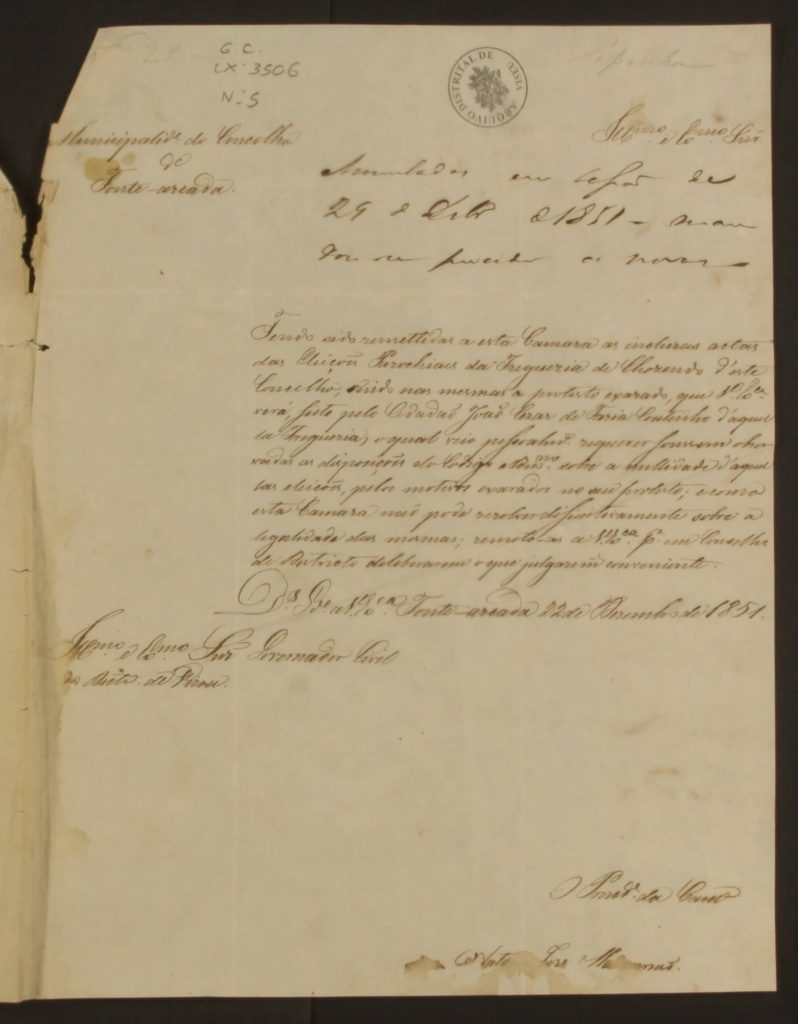 G C.
CX: 3506
Nº 5
ARQUIVO DISTRITAL DE VISEU
Illmo e Exmo Snr.
Municipalide do Concelho
de
Fonte-arcada.
Annuladas em Sessão de
29 de Dezbro de 1851 –
a novas
Tendo sido remettidas a esta Camara as incluzas actas
das Eleições Parochiaes da Freguezia de Chozendo d'este
Concelho, vindo nas mesmas o protesto exarado, que V. Exca
verá, feito pelo Cidadão João Cezar de Faria Coutinho d'aquel
la Freguezia, o qual veio pessoalmte requerer fossem obser
vadas as disposições do Codigo Admvo sobre a nullidade d'aquel
las eleições, pelos motivos exarados no seu protesto; e como
esta Camara não póde rezolver difinitivamente sobre a
legalidade das mesmas; remete-as a V. Exca pa em Conselho
de Districto deliberarem o que julgarem conveniente.
Ds Gde a V. Exca Fonte-arcada 22 de Dezembro de 1851.
Illmo e Exmo Snr Governador Civil
do Distro de Vizeu.
O Presde da Camra
José